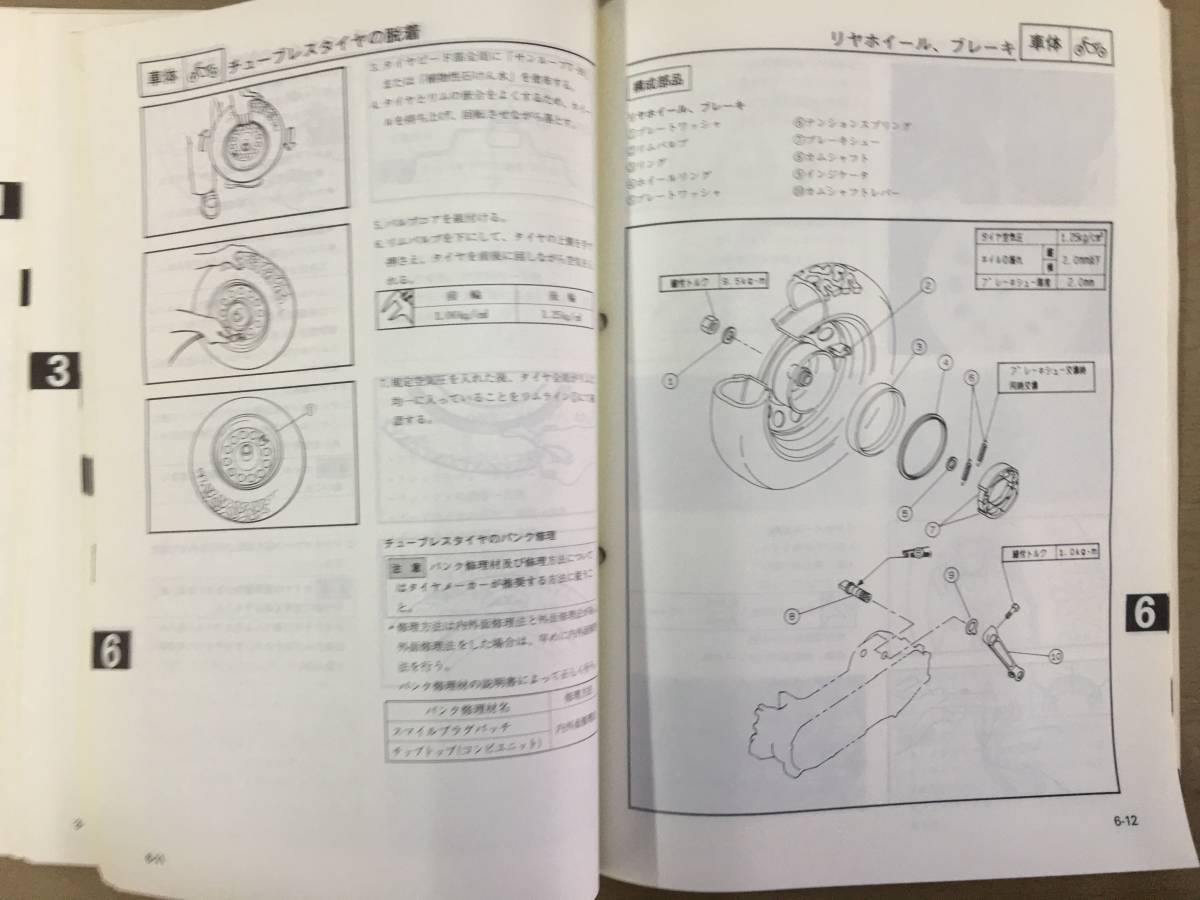 車体
チューブレスタイヤの脱着
3. タイヤビード部全周に「
または「植物性石けん水」を塗布する。
4. タイヤとリムの嵌合をよくするため、ホイー
ルを持ち上げ、回転させながら落とす。
5. バルブコアを組付ける。
6. リムバルブを下にして、タイヤの上側を手で
押さえ、タイヤを前後に回しながら空気を入
れる。
前輪 後輪
1.00kg/㎠ 1.25kg/㎠
7. 規定空気圧を入れた後、タイヤ全周がリムに
均一に入っていることをリムライン①にて確
認する。
①
チューブレスタイヤのパンク修理
注意 パンク修理材及び修理方法について
はタイヤメーカーが推奨する方法に従うこ
と。
修理方法は内外面修理法と外面修理法があ
外面修理法をした場合は、早めに内外面修理
法を行う。
パンク修理材の説明書によって正しく
パンク修理材名 修理方法
スマイルプラグパッチ
チップトップ(コンビユニット)
内外面修理
3
6
6-11
リヤホイール、ブレーキ
車体
構成部品
リヤホイール、ブレーキ
①プレートワッシャ
②リムバルブ
③リング
④ホイールリング
⑤プレートワッシャ
⑥テンションスプリング
⑦ブレーキシュー
⑧カムシャフト
⑨インジケータ
⑩カムシャフトレバー
タイヤ空気圧 1.25kg/cm²
ホイルの振れ 縦 横 2.0mm以下
ブレーキシュー限度 2.0mm
締付トルク 9.5kg-m
①
②
③
④
⑥
ブレーキシュー交換時
同時交換
⑤
⑦
締付トルク 1.0kg-m
⑧
⑨
⑩
6
6-12